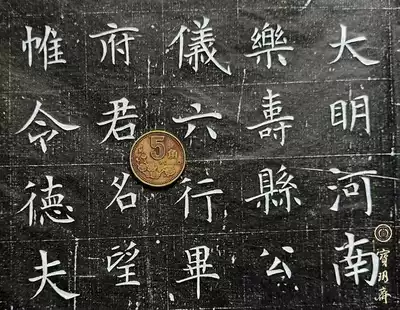 大明河南
樂壽縣公
儀六行畢
府君名望
帷令德夫
5
寶玥齋